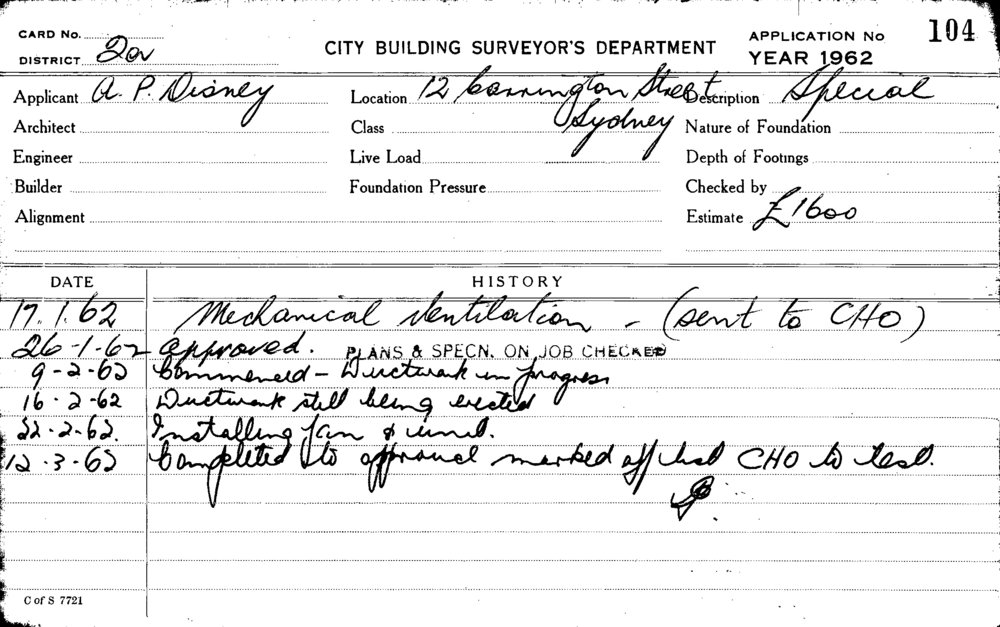 CARD No.
DISTRICT 2a
CITY BUILDING SURVEYOR'S DEPARTMENT
APPLICATION No 104
YEAR 1962
Applicant A. P. Disney
Location 12 Carrington Street
Sydney
Description Special
Architect
Class
Nature of Foundation
Engineer
Live Load
Depth of Footings
Builder
Foundation Pressure
Checked by
Alignment
Estimate £1600
DATE HISTORY
17.1.62 Mechanical Ventilation - (sent to CHO)
26-1-62 Approved. PLANS & SPECN. ON JOB CHECKED
9-2-62 Commenced - Ductwork in progress
16.2-62 Ductwork still being erected
22.2-62. Installing fan & unit.
12.3-62 Completed to approval marked off list CHO to test.
C of S 7721